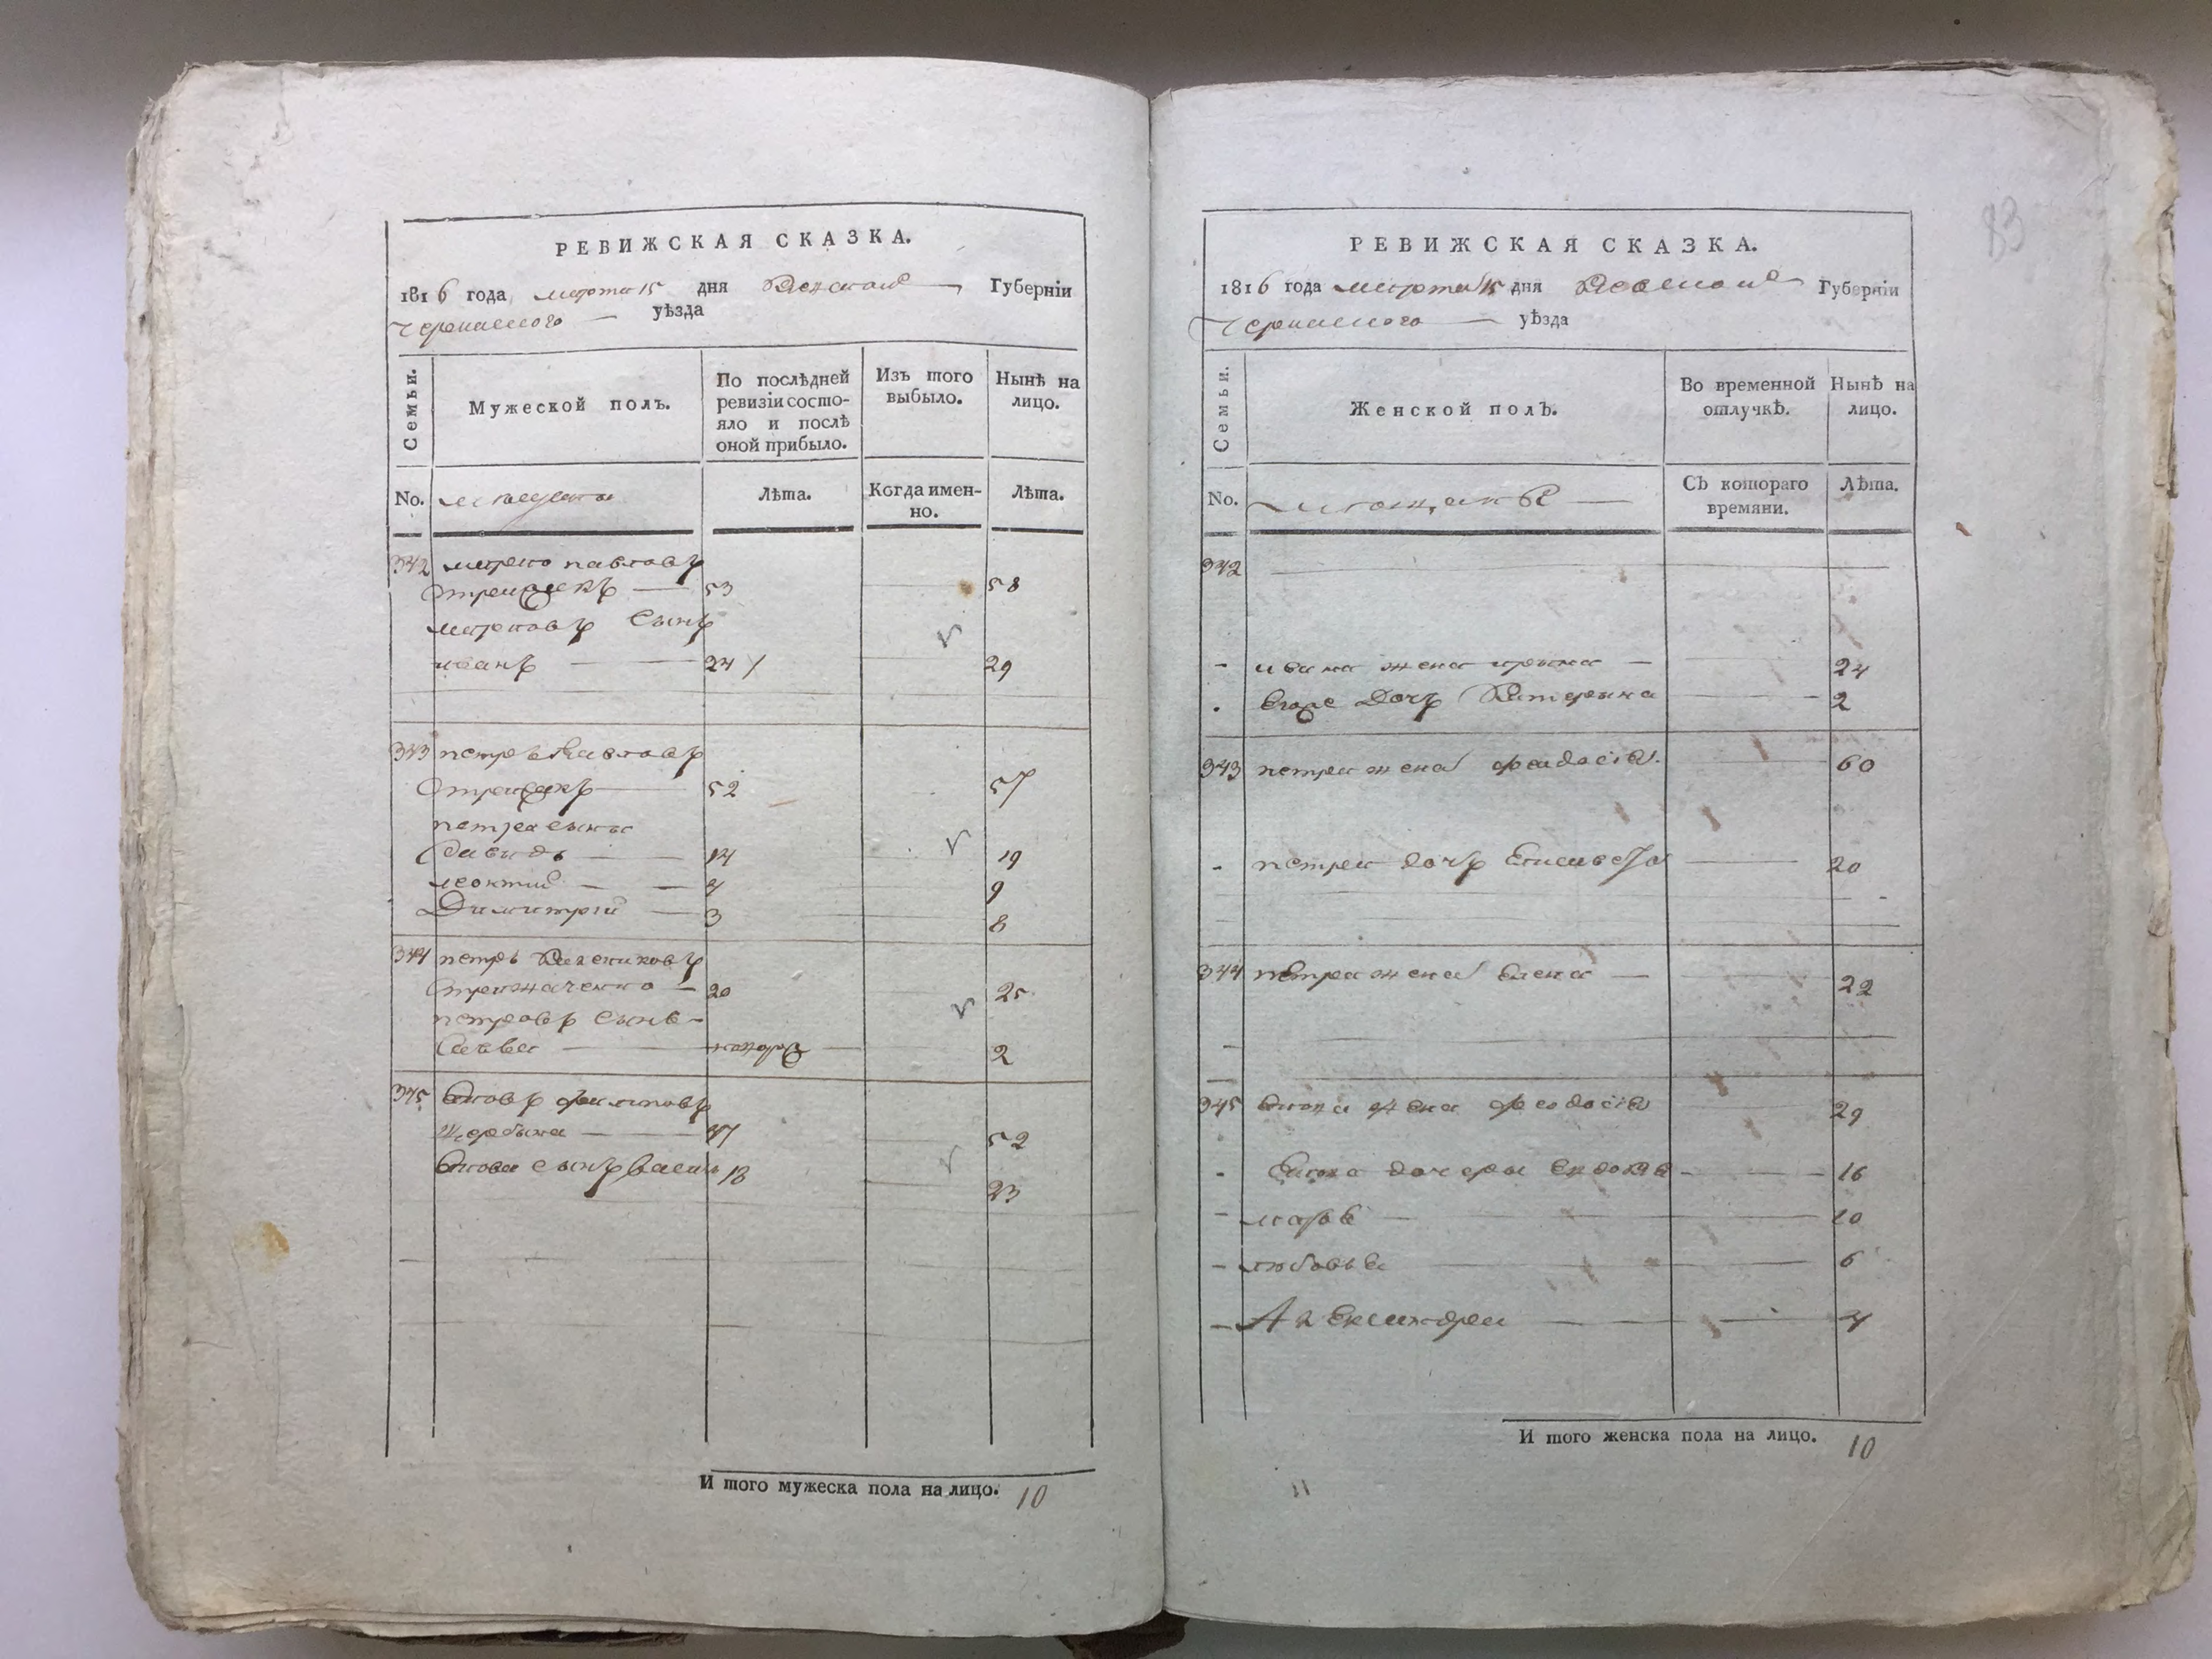 83
РЕВИЖСКАЯ СКАЗКА.
1816 года марта 15 дня Киевской Губерніи
Черкаского уѣзда
Семьи.
Мужеской полъ.
По послѣдней ревизіи состо-
яло и послѣ оной прибыло.
Изъ того выбыло.
Нынѣ на лицо.
No.
Лѣта.
Когда имен-
но.
Лѣта.
342 марко павловъ
53 58
марковъ Сынъ
иванъ 24 29
343 петръ Павловъ
52 57
петра сыны
Давидъ 14 19
леонтий 4 9
Димитрий 3 8
344 петръ
20 25
петровъ Сынъ
Савва 2
345 филиповъ
Щербина 47 52
сынъ василь 18 23
И того мужеска пола на лицо. 10
РЕВИЖСКАЯ СКАЗКА.
1816 года марта 15 дня Киевской Губерніи
Черкаского уѣзда
Семьи.
Женской полъ.
Во временной отлучкѣ.
Нынѣ на лицо.
No. мещанѣ
Съ котораго времяни.
Лѣта.
342
ивана жена ирина 24
Дочъ Катерина 2
343 петра жена феодосія 60
петра дочъ Елисавета 20
344 петра жена Елена 22
345 жена феодосія 29
дочери 16
марѳа 10
любовъ 6
Александра 4
И того женска пола на лицо. 10